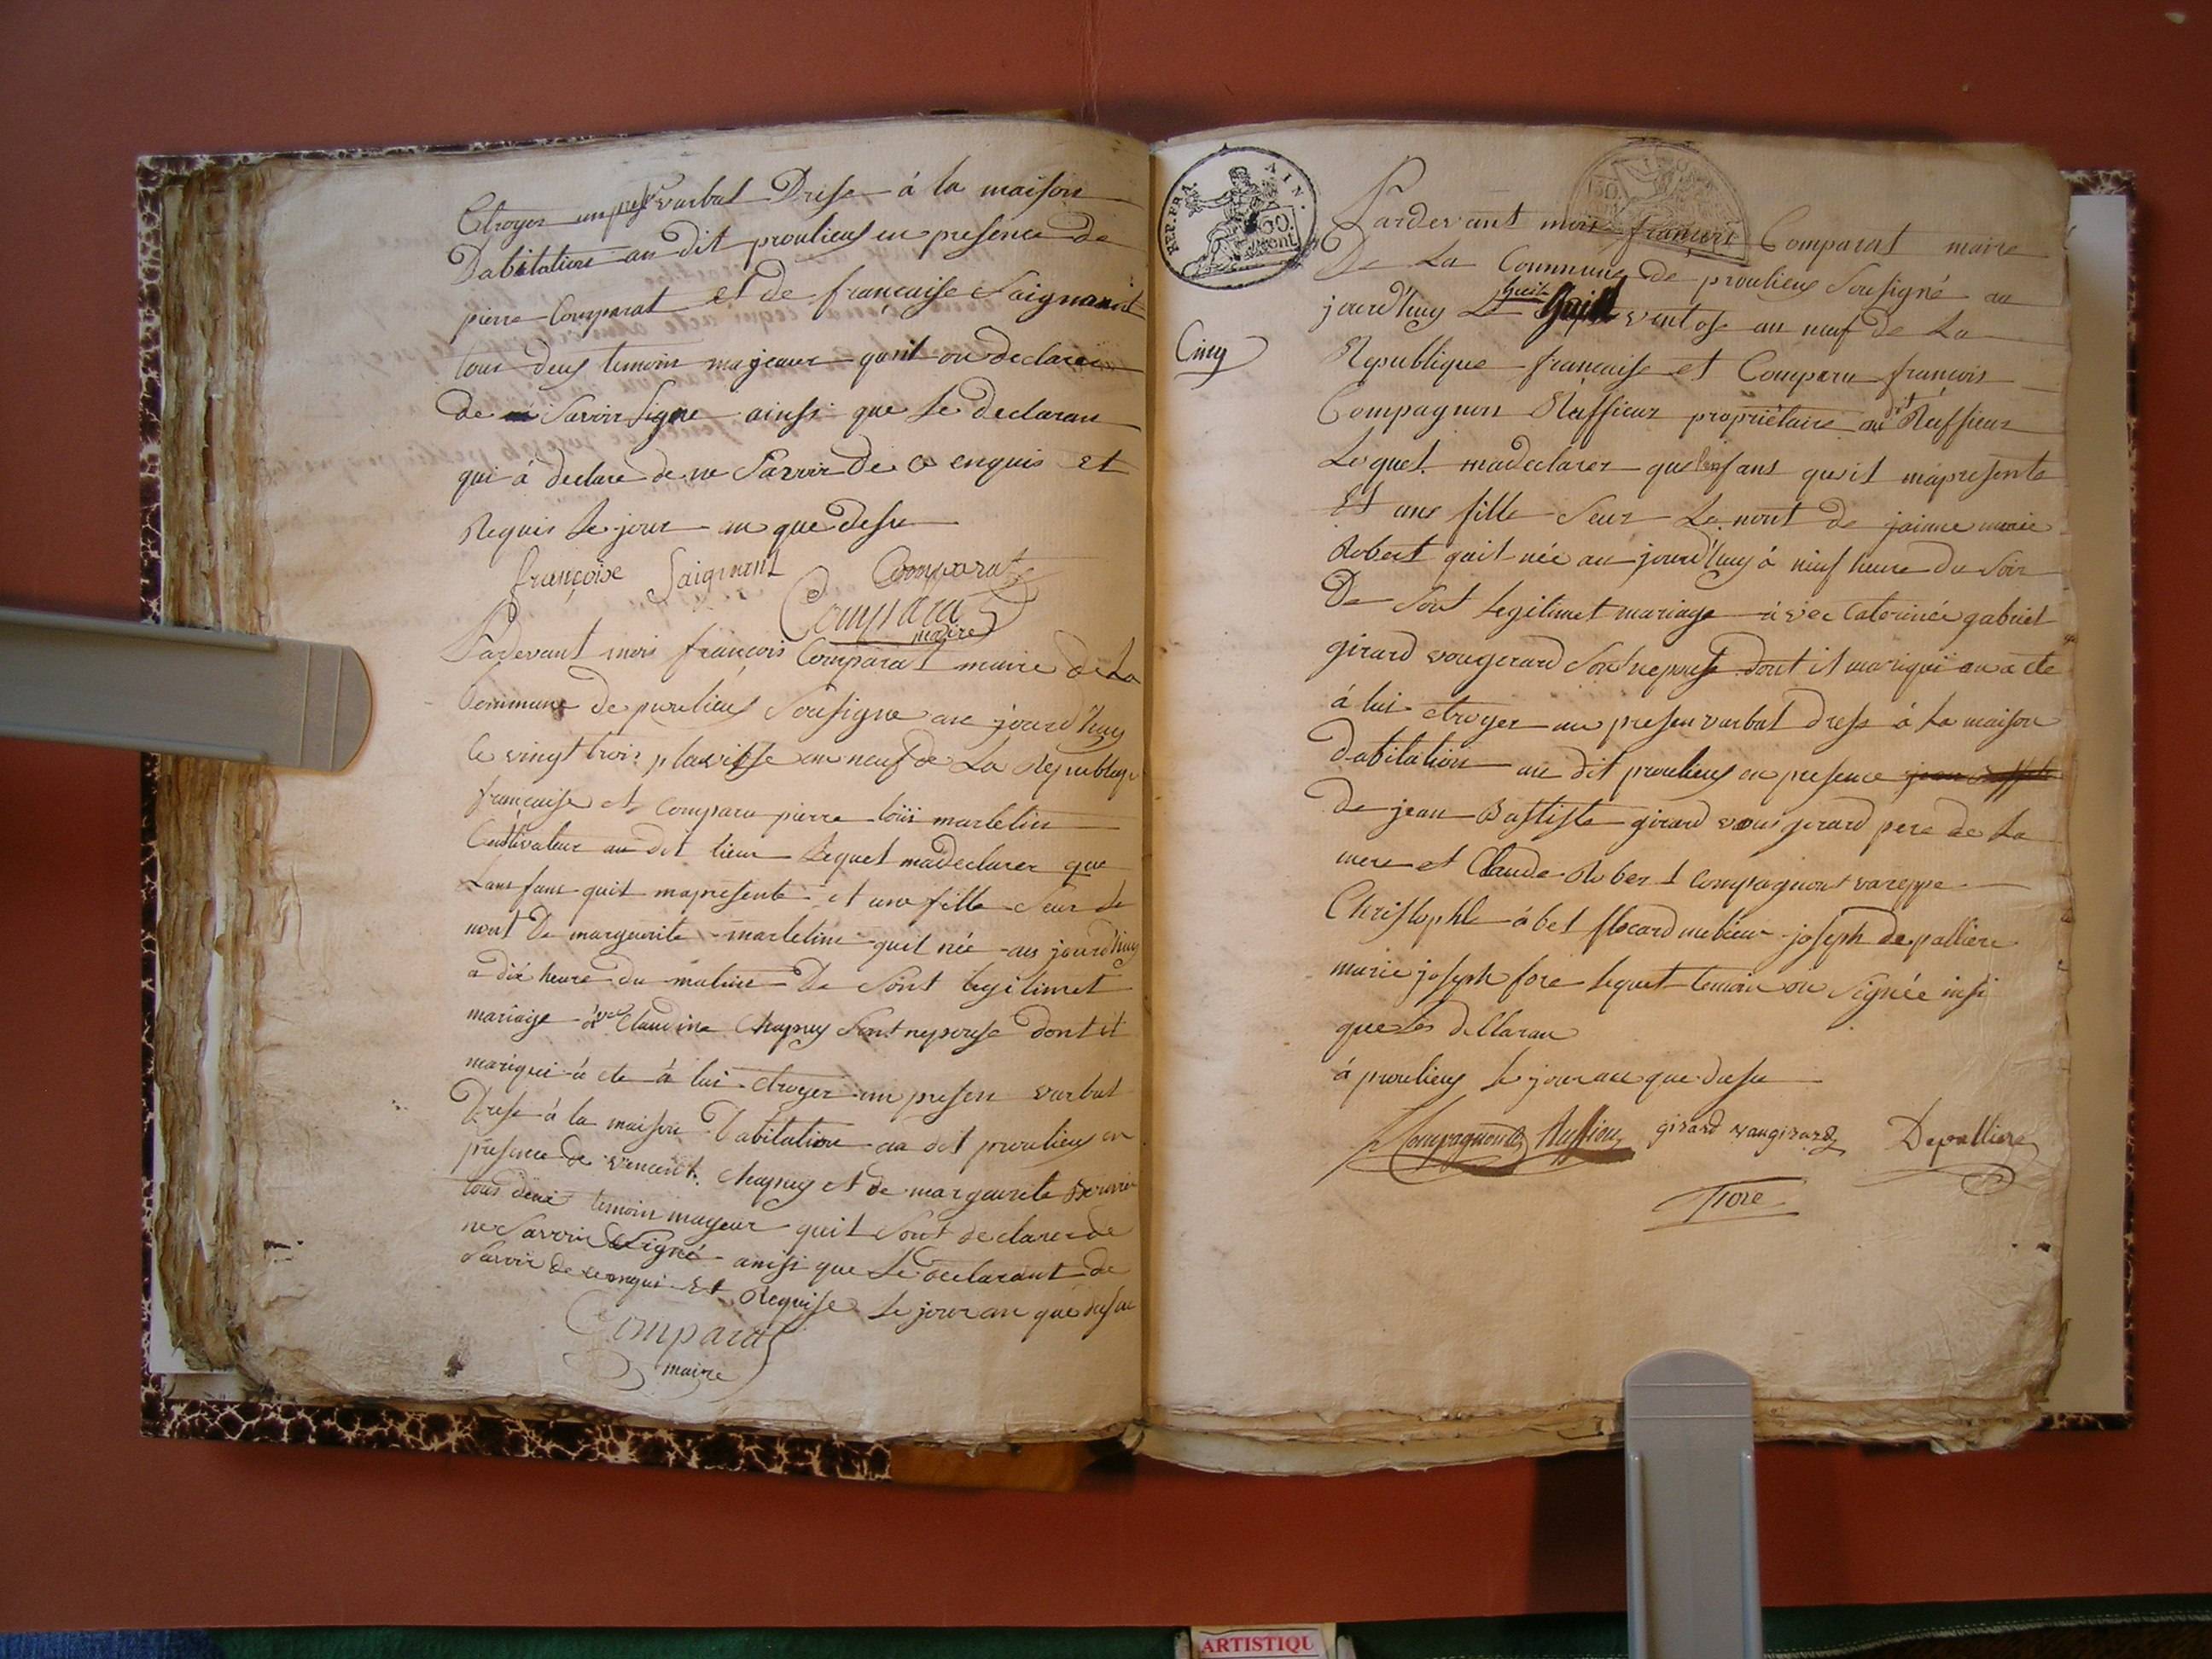 Etroyer un pres varbal Dresse à la maison
Dabitation au dit proulieus en presence de
pierre Comparat et de francaise Saignant
tous deus temoin majeaur quit on declarer
de Savoir Signe ainssi que Le declaran
qui à declare de ne Savoir De ce enquis et
Requis Le jour an que desu
françoise Saignent Comparat
Comparat
maire
Pardevant moi françois Comparat maire de La
Commune de proulieus Sousigne au jourd'huy
le vingt trois pluviosse an neuf de La Republique
francaise et Comparu pierre loüi martelin
Cultivateur au dit lieux Lequel madeclarer que
Lans fans quit mapresente et une fille Seur Le
nont De marguerite martelin quit née au jourd'huy
a dix heure du matin De Sont legitimet
mariage avec Claudine Chapuy Sont nepouse dont it
mariqui à ete à lui etroyer un presen varbal
Dresse à la maison Dabitation au dit proulieus en
presence de vincent Chapuy et de marguerite
tous deux temoin majeur quit Sont declarer de
ne Savoir Signé ainssi que Le declarant de
Savoir de ce enqui Et Requise Le jour an que desu
Comparat
maire
REP. FRA. AIN.
50. Cent
Cinq
Pardevant moi françois Comparat maire
De La Commune de proulieus Sousigné au
jourd'huy Le huit ventose an neuf de La
Republique francaise et Comparu francois
Compagnon Ruffieux propriétaire au dit Ruffieux
Lequel madeclarer que lenfans quit mapresente
Et une fille Seur Le nont de jaime marie
Robert quit née au jourd'huy à neuf heure du Soir
De Sont Legitimet mariage avec Caterinée gabriel
girard vougerard Sont nepouse dont it mariqui au a ete
à lui etroyer un presen varbal dresse à La maison
Dabitation au dit proulieus en presence jean
De jean Baptiste girard vouigerard pere de La
mere et Claude Robert Compagnont vareppe
Christophle àbel flocard mebieux joseph depalliere
marie joseph fore Lequel temoin on Signée insi
que les dellaran
à proulieus Le jour an que desu
Compagnon Ruffieux girard vaugirard Depalliere
fore
ARTISTIQU